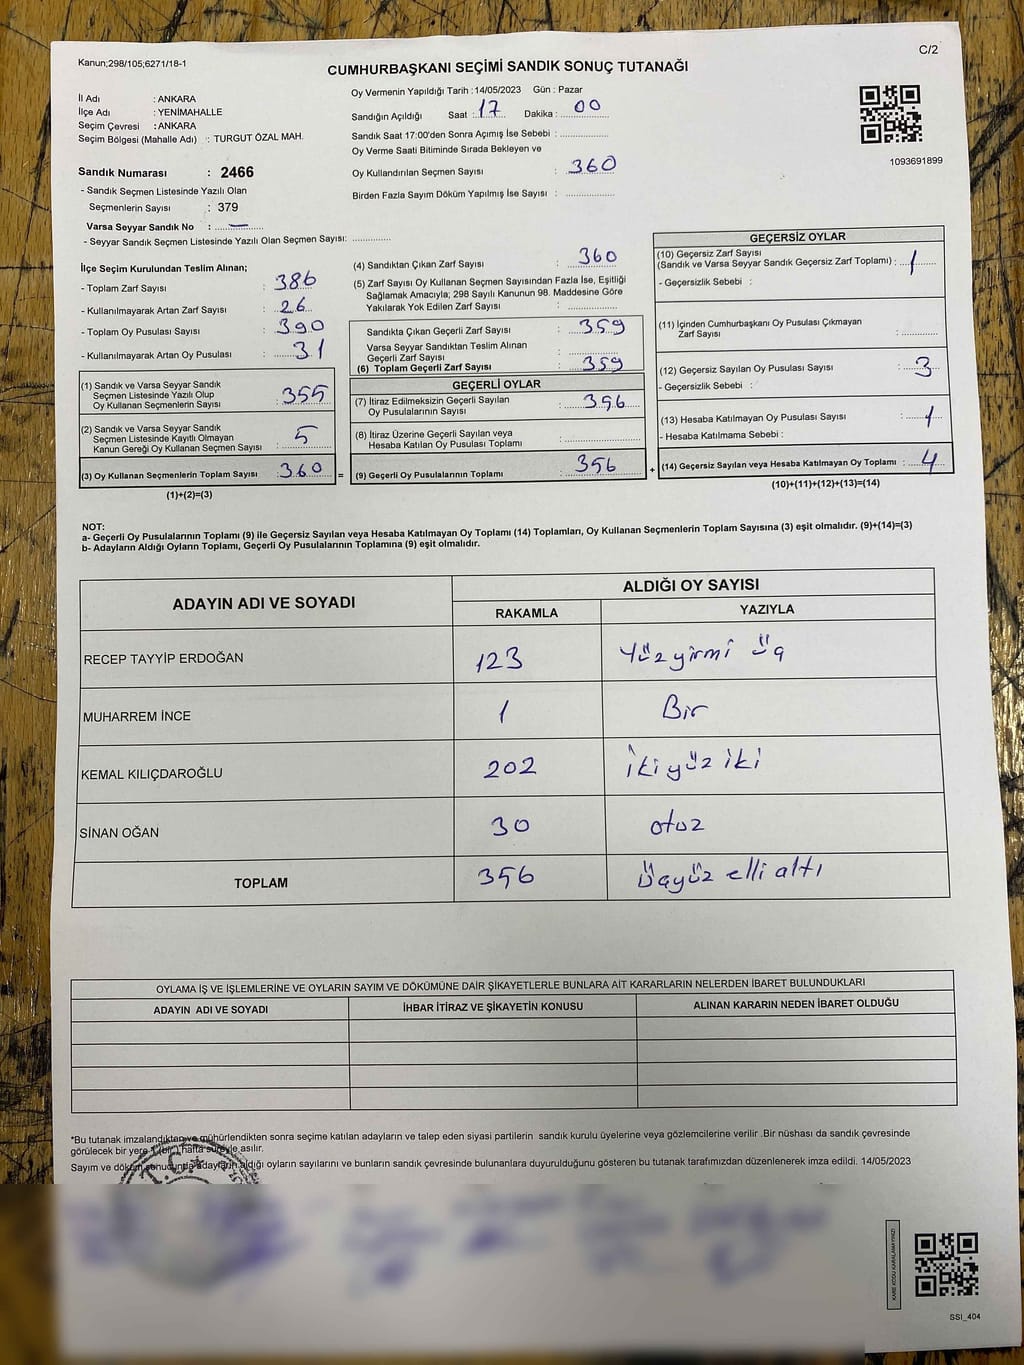 Kanun;298/105;6271/18-1
C/2
CUMHURBAŞKANI SEÇİMİ SANDIK SONUÇ TUTANAĞI
İl Adı : ANKARA
İlçe Adı : YENİMAHALLE
Seçim Çevresi : ANKARA
Seçim Bölgesi (Mahalle Adı) : TURGUT ÖZAL MAH.
Sandık Numarası : 2466
- Sandık Seçmen Listesinde Yazılı Olan
Seçmenlerin Sayısı : 379
Varsa Seyyar Sandık No : —
- Seyyar Sandık Seçmen Listesinde Yazılı Olan Seçmen Sayısı: ..............
Oy Vermenin Yapıldığı Tarih : 14/05/2023 Gün : Pazar
Sandığın Açıldığı Saat : 17 Dakika : 00
Sandık Saat 17:00'den Sonra Açımış İse Sebebi : ..............
Oy Verme Saati Bitiminde Sırada Bekleyen ve
Oy Kullandırılan Seçmen Sayısı : 360
Birden Fazla Sayım Döküm Yapılmış İse Sayısı : ..............
1093691899
İlçe Seçim Kurulundan Teslim Alınan;
- Toplam Zarf Sayısı : 386
- Kullanılmayarak Artan Zarf Sayısı : 26
- Toplam Oy Pusulası Sayısı : 390
- Kullanılmayarak Artan Oy Pusulası : 31
(1) Sandık ve Varsa Seyyar Sandık
Seçmen Listesinde Yazılı Olup
Oy Kullanan Seçmenlerin Sayısı : 355
(2) Sandık ve Varsa Seyyar Sandık
Seçmen Listesinde Kayıtlı Olmayan
Kanun Gereği Oy Kullanan Seçmen Sayısı : 5
(3) Oy Kullanan Seçmenlerin Toplam Sayısı : 360 =
(1)+(2)=(3)
(4) Sandıktan Çıkan Zarf Sayısı : 360
(5) Zarf Sayısı Oy Kullanan Seçmen Sayısından Fazla İse, Eşitliği
Sağlamak Amacıyla; 298 Sayılı Kanunun 98. Maddesine Göre
Yakılarak Yok Edilen Zarf Sayısı : ..............
Sandıkta Çıkan Geçerli Zarf Sayısı : 359
Varsa Seyyar Sandıktan Teslim Alınan
Geçerli Zarf Sayısı : ..............
(6) Toplam Geçerli Zarf Sayısı : 359
GEÇERLİ OYLAR
(7) İtiraz Edilmeksizin Geçerli Sayılan
Oy Pusulalarının Sayısı : 356
(8) İtiraz Üzerine Geçerli Sayılan veya
Hesaba Katılan Oy Pusulası Toplamı : ..............
(9) Geçerli Oy Pusulalarının Toplamı : 356 +
GEÇERSİZ OYLAR
(10) Geçersiz Zarf Sayısı
(Sandık ve Varsa Seyyar Sandık Geçersiz Zarf Toplamı) : 1
- Geçersizlik Sebebi :
(11) İçinden Cumhurbaşkanı Oy Pusulası Çıkmayan
Zarf Sayısı : ..............
(12) Geçersiz Sayılan Oy Pusulası Sayısı : 3
- Geçersizlik Sebebi :
(13) Hesaba Katılmayan Oy Pusulası Sayısı : 1
- Hesaba Katılmama Sebebi :
(14) Geçersiz Sayılan veya Hesaba Katılmayan Oy Toplamı : 4
(10)+(11)+(12)+(13)=(14)
NOT:
a- Geçerli Oy Pusulalarının Toplamı (9) ile Geçersiz Sayılan veya Hesaba Katılmayan Oy Toplamı (14) Toplamları, Oy Kullanan Seçmenlerin Toplam Sayısına (3) eşit olmalıdır. (9)+(14)=(3)
b- Adayların Aldığı Oyların Toplamı, Geçerli Oy Pusulalarının Toplamına (9) eşit olmalıdır.
ADAYIN ADI VE SOYADI
ALDIĞI OY SAYISI
RAKAMLA YAZIYLA
RECEP TAYYİP ERDOĞAN 123 Yüzyirmi üç
MUHARREM İNCE 1 Bir
KEMAL KILIÇDAROĞLU 202 İkiyüz iki
SİNAN OĞAN 30 otuz
TOPLAM 356 Üçyüz elli altı
OYLAMA İŞ VE İŞLEMLERİNE VE OYLARIN SAYIM VE DÖKÜMÜNE DAİR ŞİKAYETLERLE BUNLARA AİT KARARLARIN NELERDEN İBARET BULUNDUKLARI
ADAYIN ADI VE SOYADI İHBAR İTİRAZ VE ŞİKAYETİN KONUSU ALINAN KARARIN NEDEN İBARET OLDUĞU
*Bu tutanak imzalandıktan ve mühürlendikten sonra seçime katılan adayların ve talep eden siyasi partilerin sandık kurulu üyelerine veya gözlemcilerine verilir .Bir nüshası da sandık çevresinde
görülecek bir yere 1 (bir) hafta süreyle asılır.
Sayım ve döküm sonucunda adayların aldığı oyların sayılarını ve bunların sandık çevresinde bulunanlara duyurulduğunu gösteren bu tutanak tarafımızdan düzenlenerek imza edildi. 14/05/2023
T.C.
KARE KODU KARALAMAYINIZ!
SSI_404